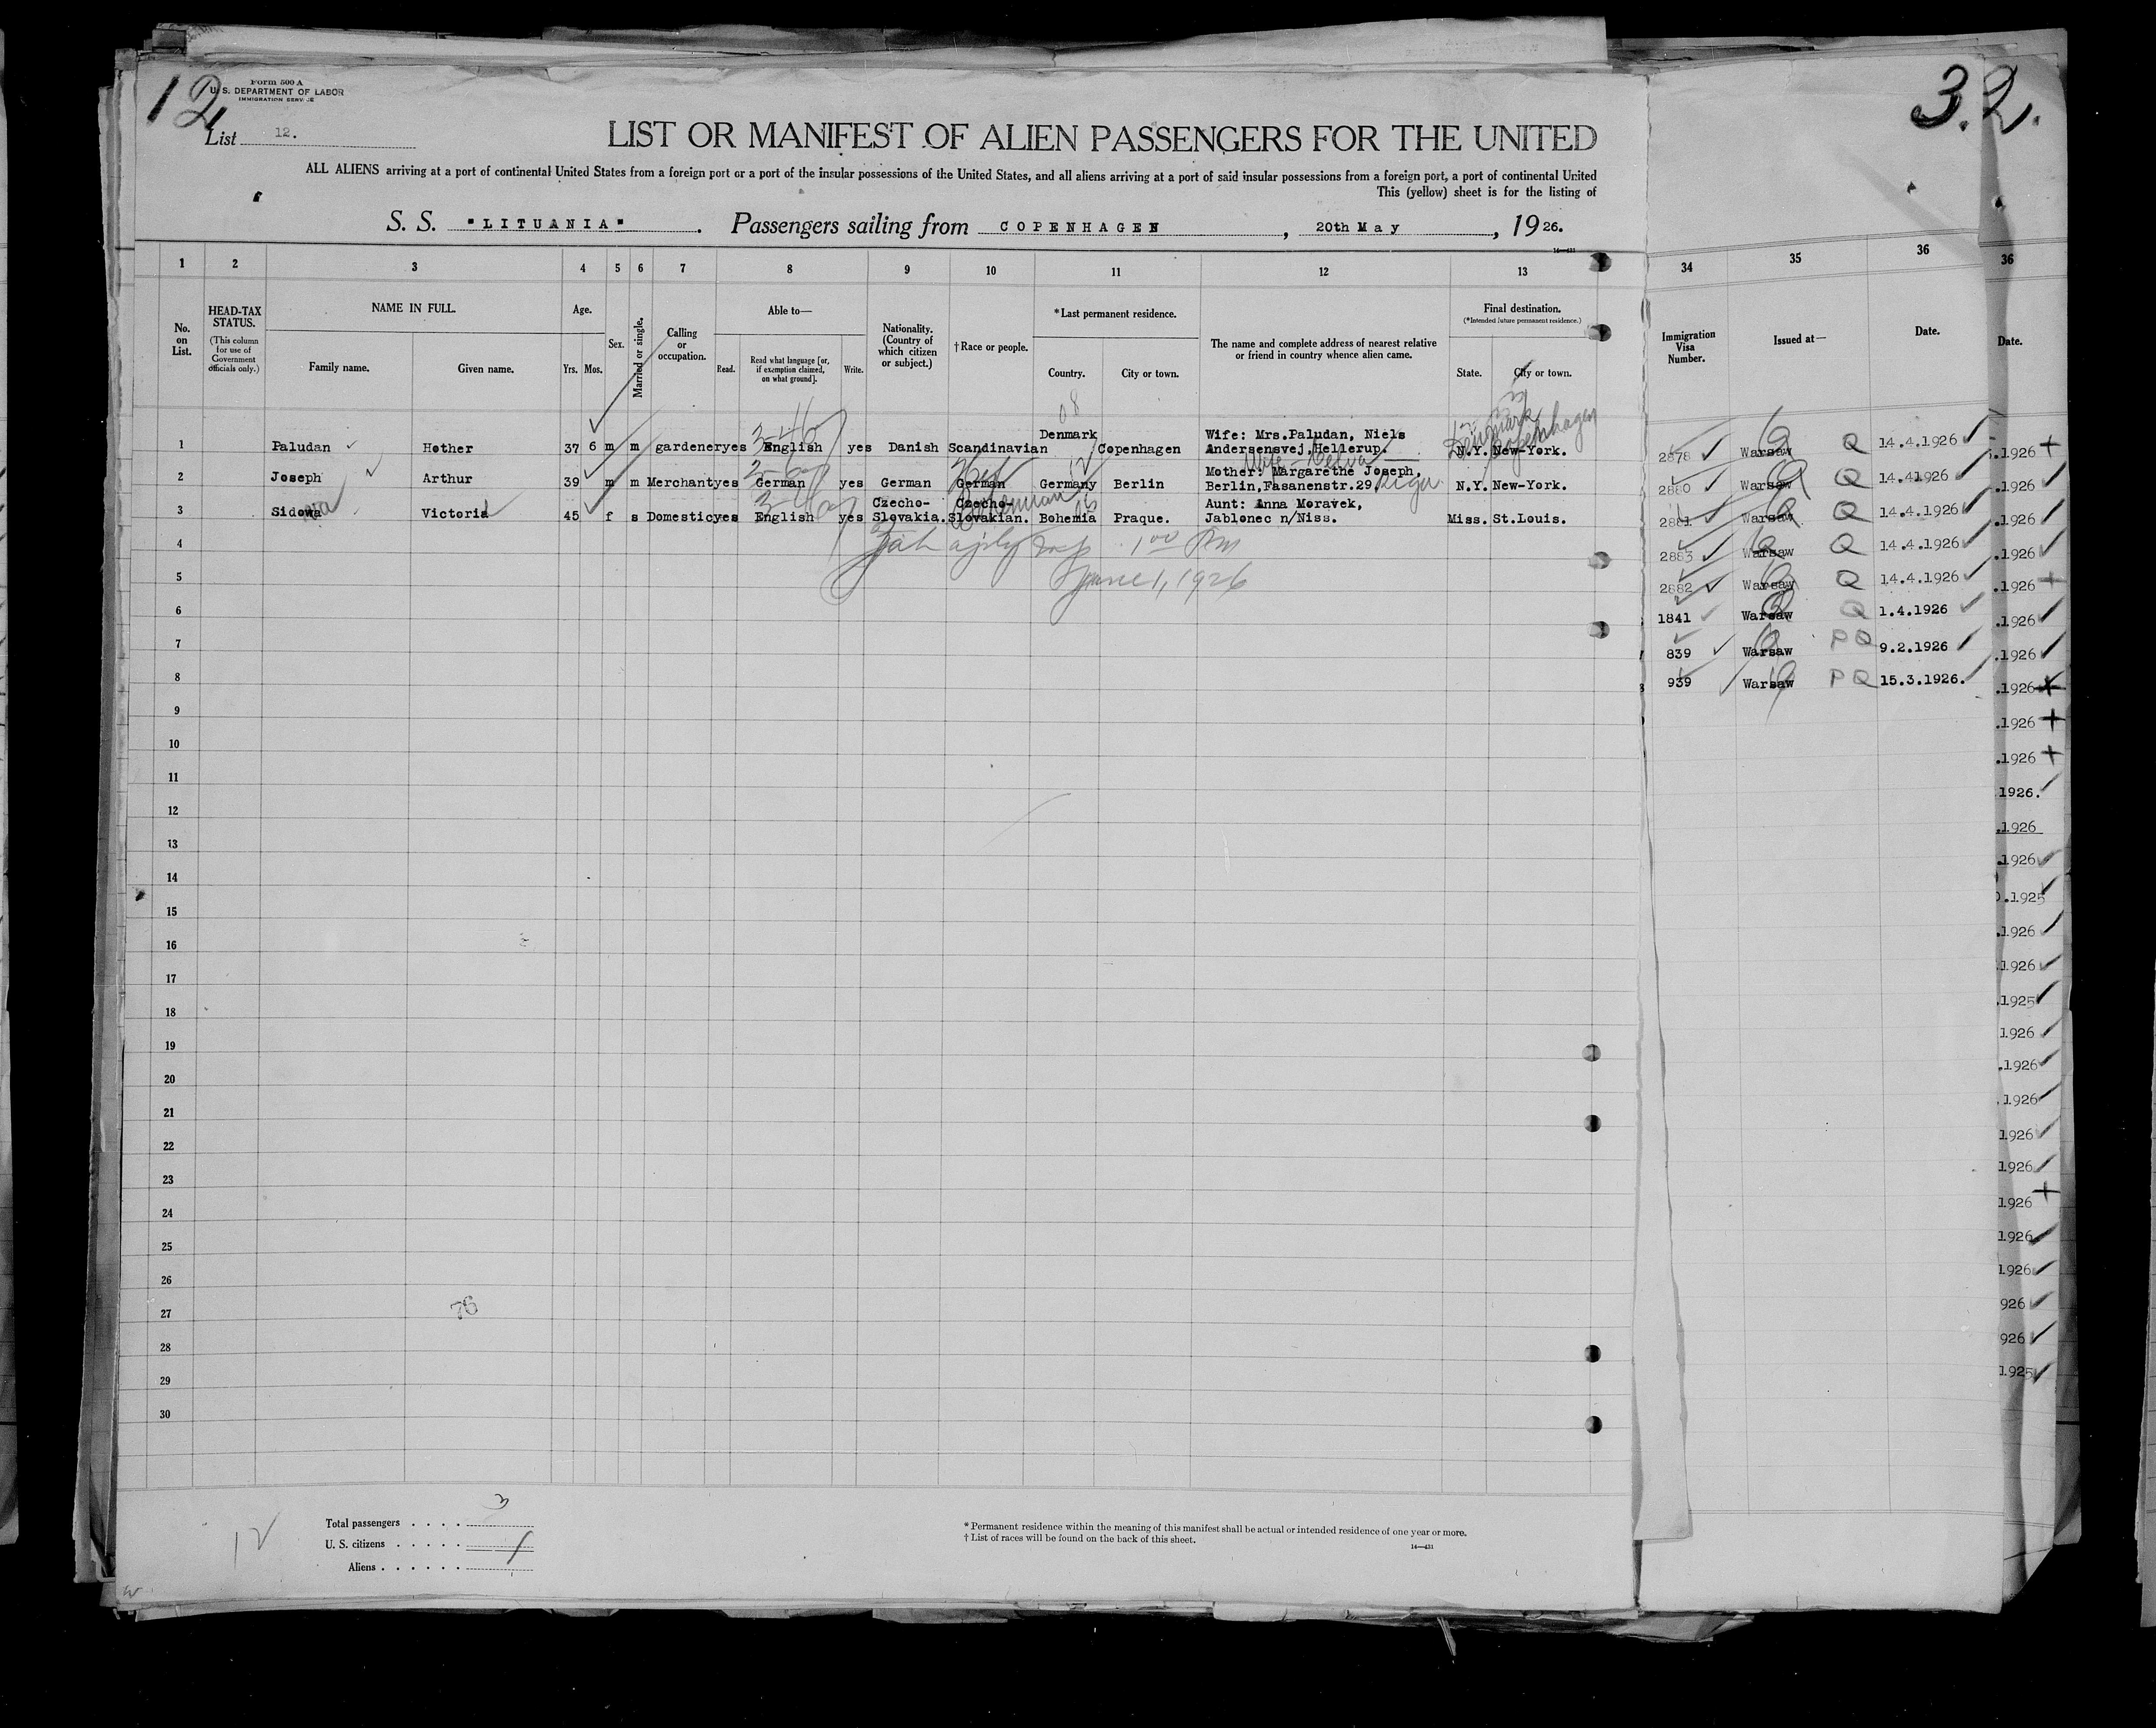 12
Form 500 A
U. S. DEPARTMENT OF LABOR
IMMIGRATION SERVICE
List 12.
3. 2.
LIST OR MANIFEST OF ALIEN PASSENGERS FOR THE UNITED
ALL ALIENS arriving at a port of continental United States from a foreign port or a port of the insular possessions of the United States, and all aliens arriving at a port of said insular possessions from a foreign port, a port of continental United
This (yellow) sheet is for the listing of
S. S. "LITUANIA". Passengers sailing from COPENHAGEN, 20th May, 1926.
14—431
1 2 3 4 5 6 7 8 9 10 11 12 13 34 35 36 36
No. on List.
HEAD-TAX STATUS.
(This column for use of Government officials only.)
NAME IN FULL.
Family name. Given name.
Age.
Yrs. Mos.
Sex.
Married or single.
Calling or occupation.
Able to—
Read. Read what language [or, if exemption claimed, on what ground]. Write.
Nationality. (Country of which citizen or subject.)
†Race or people.
*Last permanent residence.
Country. City or town.
The name and complete address of nearest relative or friend in country whence alien came.
Final destination.
(*Intended future permanent residence.)
State. City or town.
Immigration Visa Number.
Issued at—
Date.
Date.
08
Denmark
Copenhagen
1 Paludan Hother 37 6 m m gardener yes English yes Danish Scandinavian Denmark Copenhagen Wife: Mrs.Paludan, Niels Andersensvej, Hellerup. N.Y. New-York.
2 Joseph Arthur 39 m m Merchant yes German yes German German Germany Berlin Mother: Margarethe Joseph, Berlin,Fasanenstr.29 N.Y. New-York.
3 Sidowa Victoria 45 f s Domestic yes English yes Czecho-Slovakia. Czecho-Slovakian. Bohemia Praque. Aunt: Anna Moravek, Jablonec n/Niss. Miss. St.Louis.
Bohemian
1 00 PM
June 1, 1926
4
5
6
7
8
9
10
11
12
13
14
15
16
17
18
19
20
21
22
23
24
25
26
27
28
29
30
76
2878 Warsaw Q 14.4.1926
2880 Warsaw Q 14.41926
2881 Warsaw Q 14.4.1926
2883 Warsaw Q 14.4.1926
2882 Warsaw Q 14.4.1926
1841 Warsaw Q 1.4.1926
839 Warsaw PQ 9.2.1926
939 Warsaw PQ 15.3.1926.
.1926
.1926
.1926
.1926
.1926
.1926
.1926
.1926
.1926
.1926
1926.
.1926
.1926
.1925
.1926
.1926
.1925
1926
.1926
.1926
1926
1926
1926
1926
1926
926
926
1925
12
Total passengers . . . . 3
U. S. citizens . . . . .
Aliens . . . . . .
* Permanent residence within the meaning of this manifest shall be actual or intended residence of one year or more.
† List of races will be found on the back of this sheet.
14—431